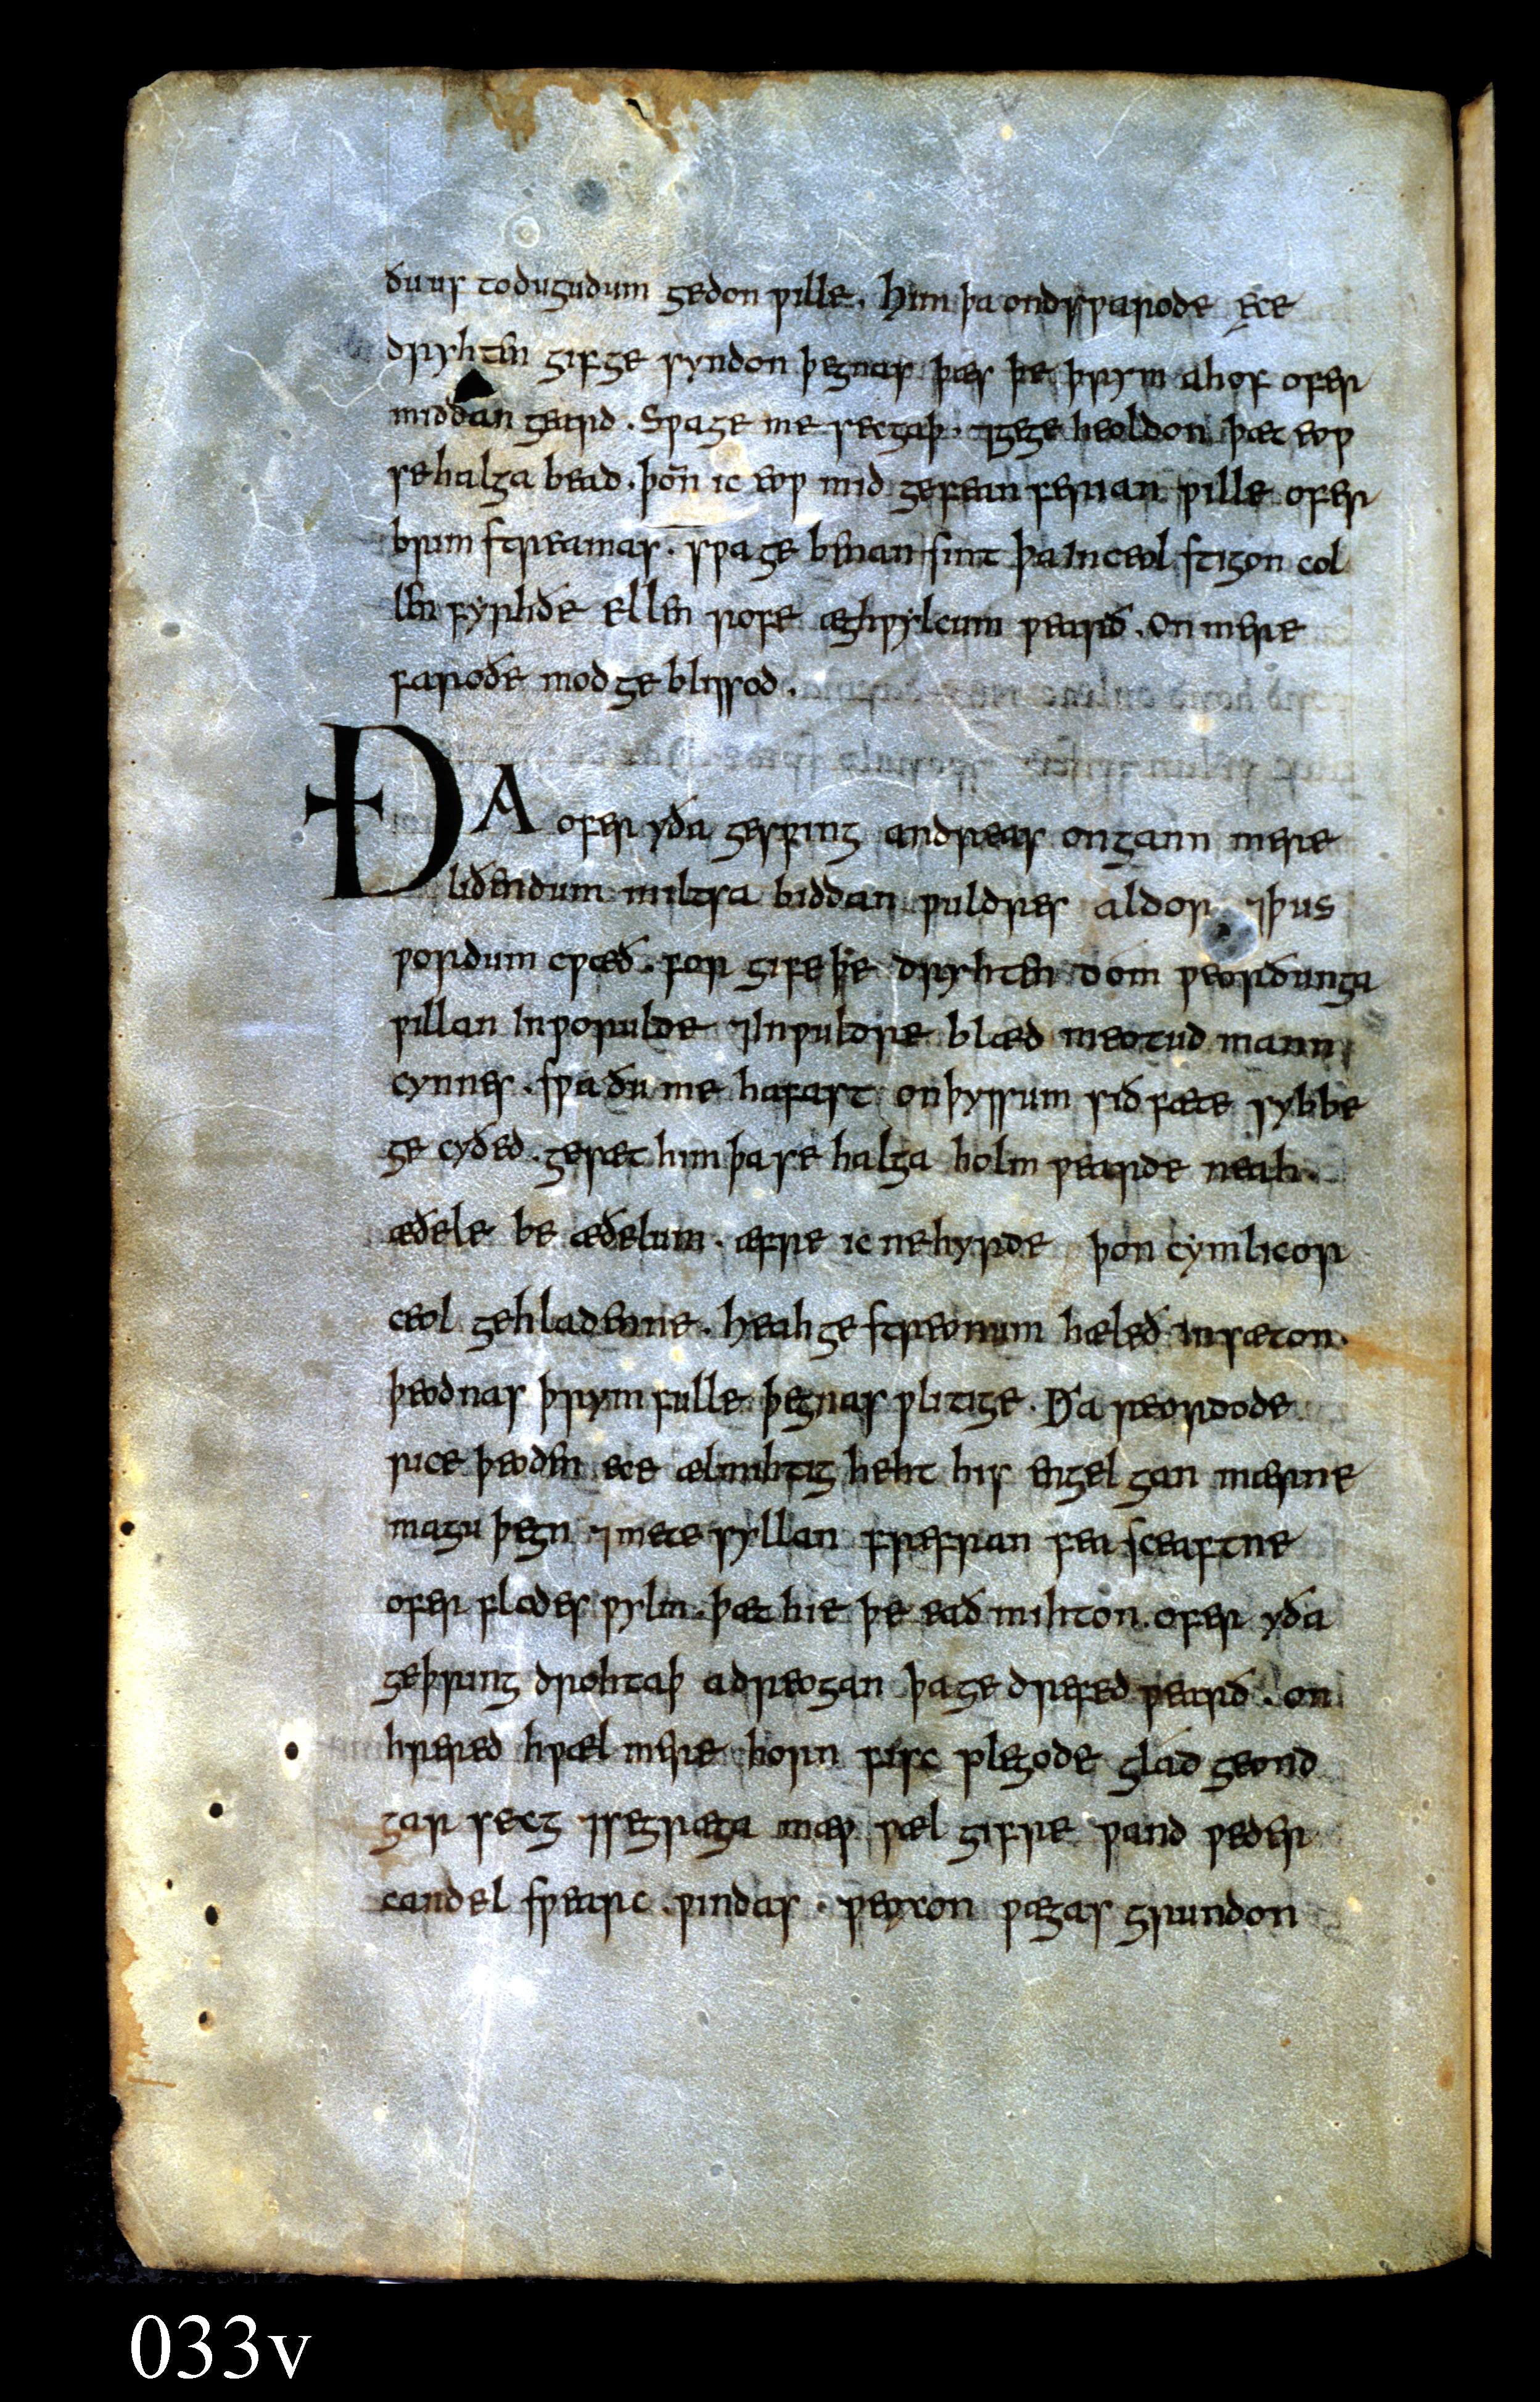 ðu us to dugudum gedon wille. him þa ondswarode ece
dryhten gif ge syndon þegnas þæs þe þrym ahof ofer
middan geard. Swa ge me secgaþ. ⁊ ge ge heoldon þæt eow
se halga bead. þoñ ic eow mid gefean ferian wille ofer
brim streamas. swa ge benan sint þa in ceol stigon col
len fyrhðe ellen rofe æghwylcum wearð. on mere
faroðe mod ge blissod.
ÐA ofer yða geswing andreas ongann mere
liðendum miltsa biddan wuldres aldor ⁊ þus
wordum cwæð. for gife þe dryhten dom weorðunga
willan in worulde ⁊ in wuldre blæd meotud mann
cynnes. swa ðu me hafast on þyssum sið fæte sybbe
ge cyðed. gesæt him þa se halga holm wearde neah.
æðele be æðelum. æfre ic ne hyrde þon cymlicor
ceol gehladenne. heah ge streonum hæleð in sæton.
þeodnas þrym fulle þegnas wlitige. Ða reordode
rice þeoden ece ælmihtig heht his engel gan mærne
magu þegn ⁊ mete syllan frefran fea sceaftne
ofer flodes wylm. þæt hie þe eað mihton. ofer yða
geþring drohtaþ adreogan þa ge drefed wearð. on
hrered hwæl mere horn fisc plegode glad geond
gar secg ⁊ se græga mæw wæl gifre wand weder
candel swearc. windas. weoxon wægas grundon
033v